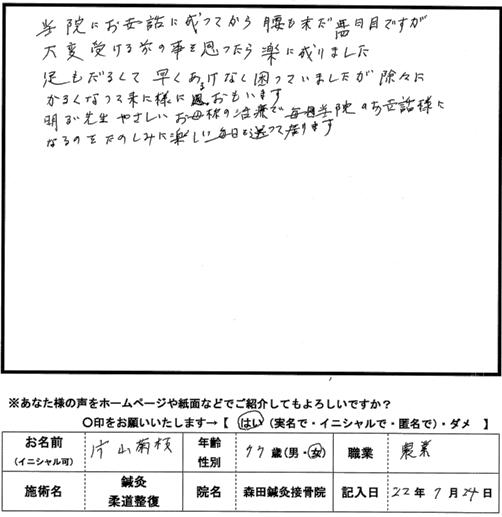 学院にお世話に成ってから腰も未だ 日目ですが
大変受ける前の事を思ったら楽に成りました
足もだるくて早くあるけなく困っていましたが除々に
かるくなって来た様におもいます
明るい先生やさしいお 様の治療で毎日学院のお世話様に
なるのをたのしみに楽しい毎日を送って居ります
※あなた様の声をホームページや紙面などでご紹介してもよろしいですか？
〇印をお願いいたします→【 はい（実名で・イニシャルで・匿名で）・ダメ 】
お名前（イニシャル可） 片山 年齢性別 77歳（男・女） 職業 農業
施術名 鍼灸柔道整復 院名 森田鍼灸接骨院 記入日 22年7月24日